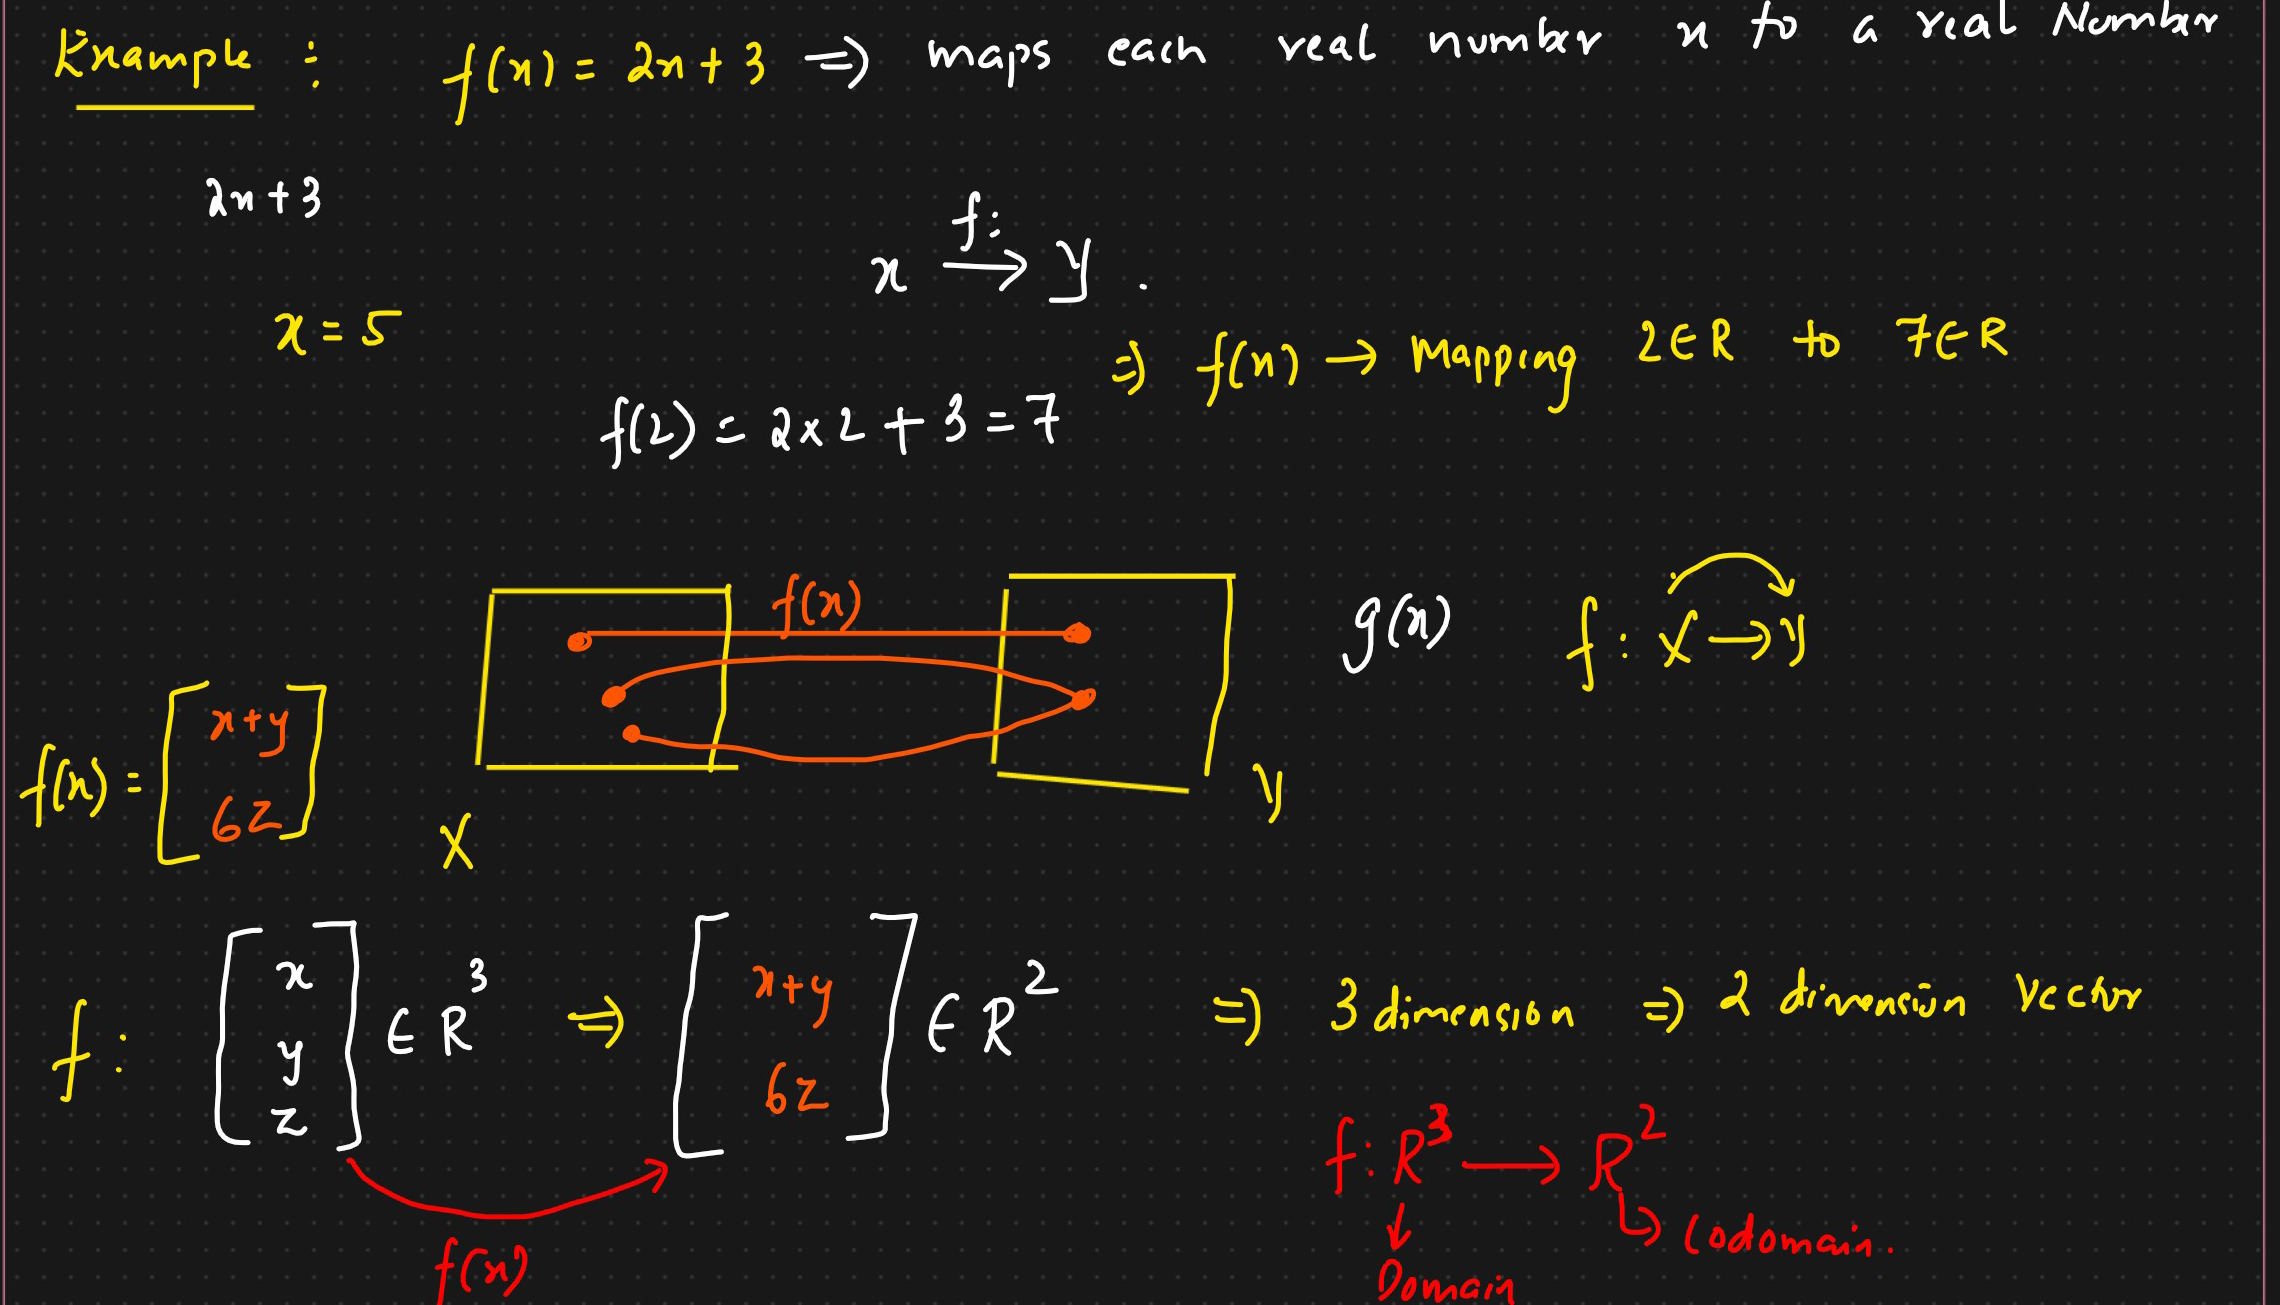 Example : f(x) = 2x + 3 ⇒ maps each real number x to a real Number
2x + 3
f:
x → y .
x = 5
⇒ f(x) → Mapping 2 ∈ R to 7 ∈ R
f(2) = 2 x 2 + 3 = 7
f(x)
g(x) f : X → Y
X Y
f(x) = [ x+y
6z ]
f : [ x
y
z ] ∈ R³ ⇒ [ x+y
6z ] ∈ R² ⇒ 3 dimension ⇒ 2 dimension Vector
f(x)
f : R³ → R²
↓ Domain
↳ Codomain.